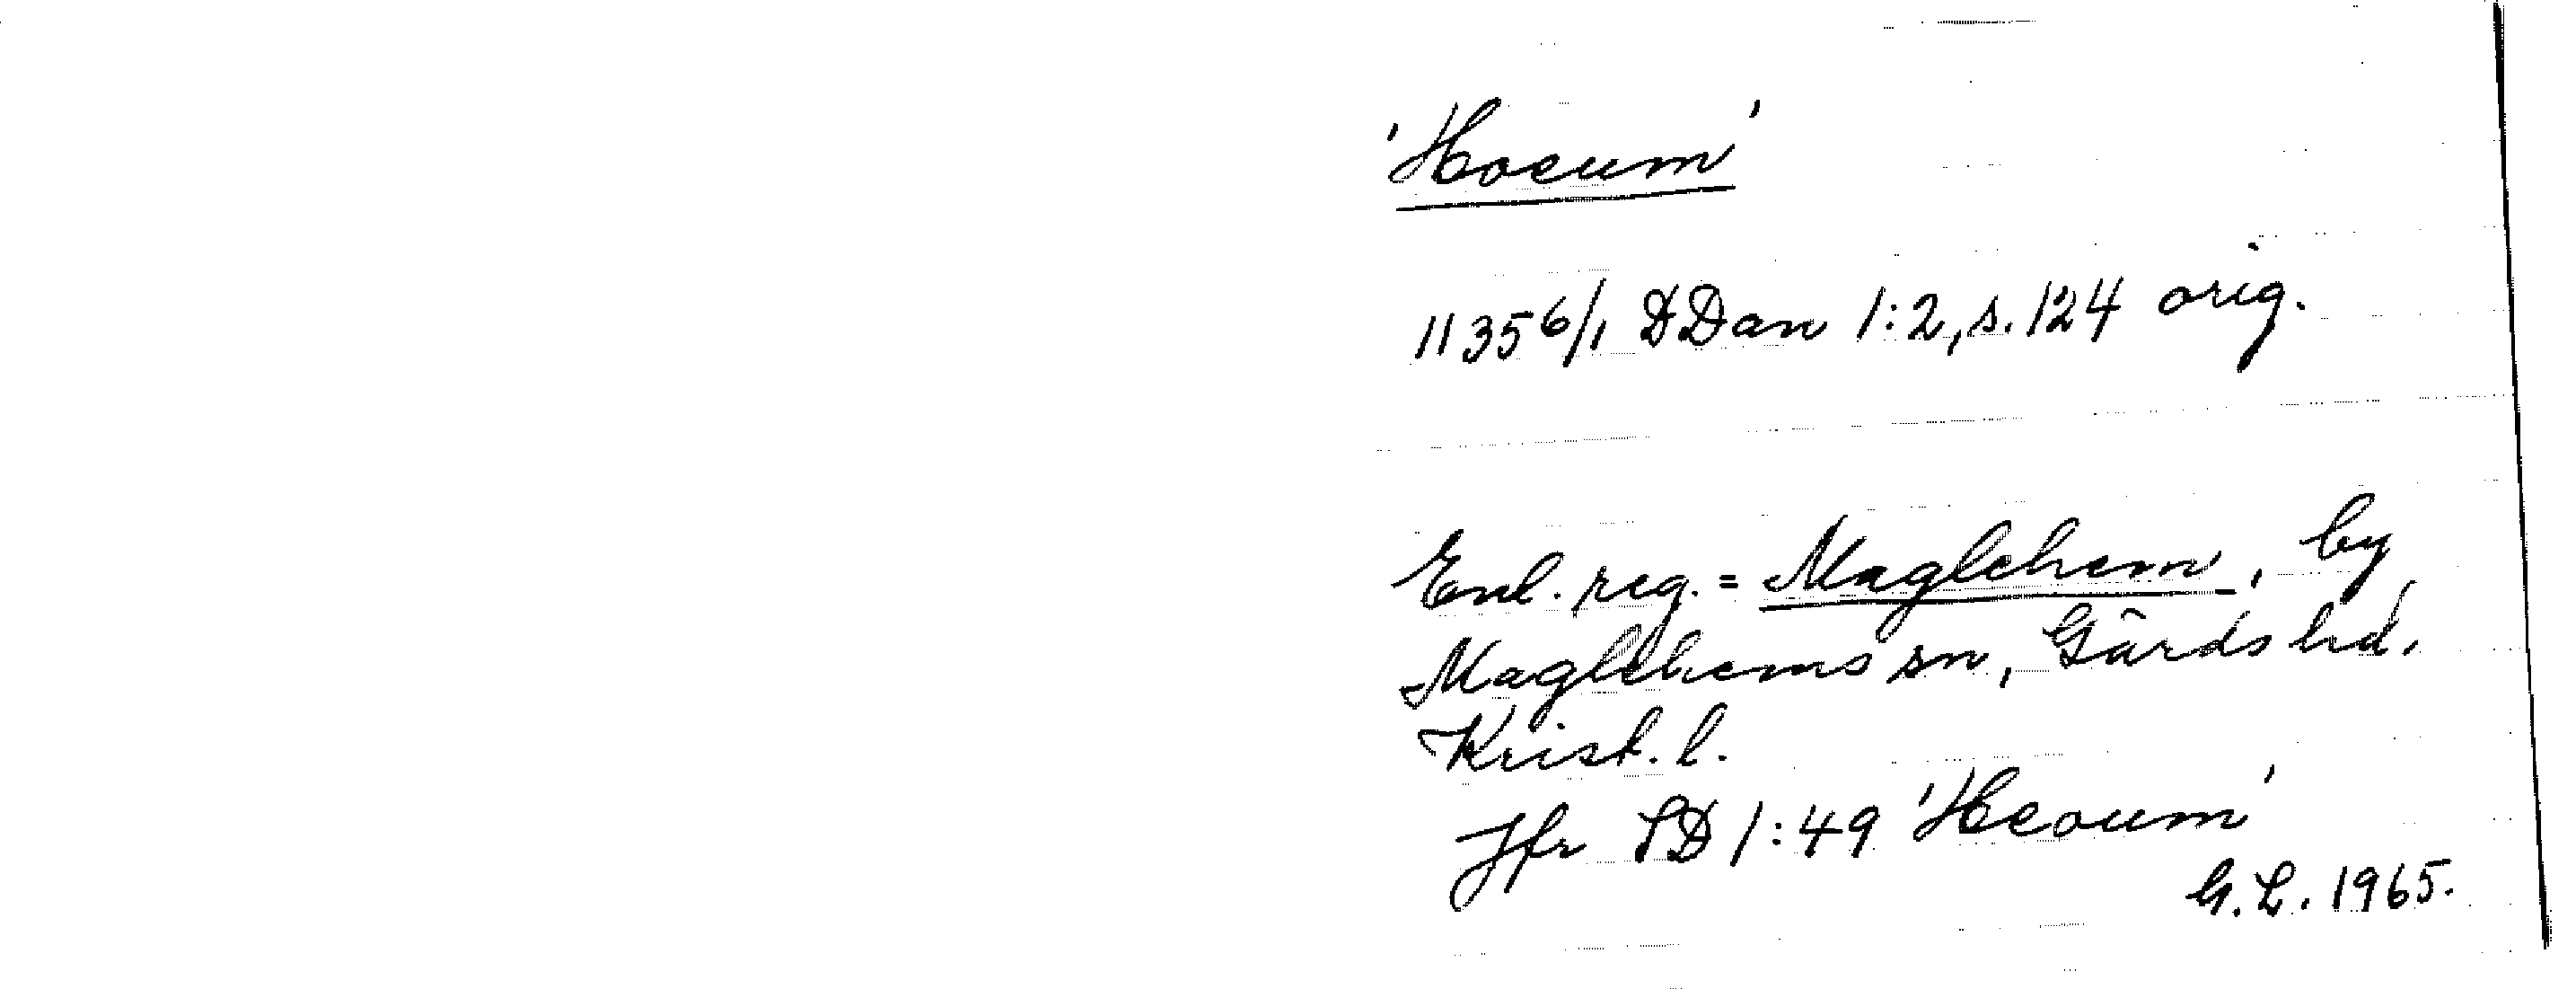 'Hoeum'
1135 6/1 DDan 1:2, s. 124 orig.
Enl. reg. = Maglehem, by
Maglehems sn, Gärds hd,
Krist. l.
Jfr SD 1:49 'Heoum'
G.L. 1965.